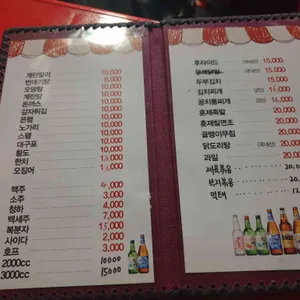 계란말이 10,000
번데기탕 8,000
오뎅탕 10,000
계란탕 10,000
돈까스 10,000
감자튀김 10,000
은행 10,000
노가리 10,000
스팸 10,000
대구포 10,000
황도 10,000
한치
오징어
맥주 4,000
소주 4,000
청하
백세주 7,000
복분자 15,000
사이다 2,000
호프 3,000
2000cc 10000
3000cc 15000
후라이드 (국내산) 15,000
15,000
두부김치 15,000
김치찌개 16,000
꽁치통찌개 16,000
훈제족발 20,000
훈제쫄면조 20,000
골뱅이무침 20,000
닭도리탕 (국내산) 20,000
과일 20,000
제육볶음 20,0
먹태